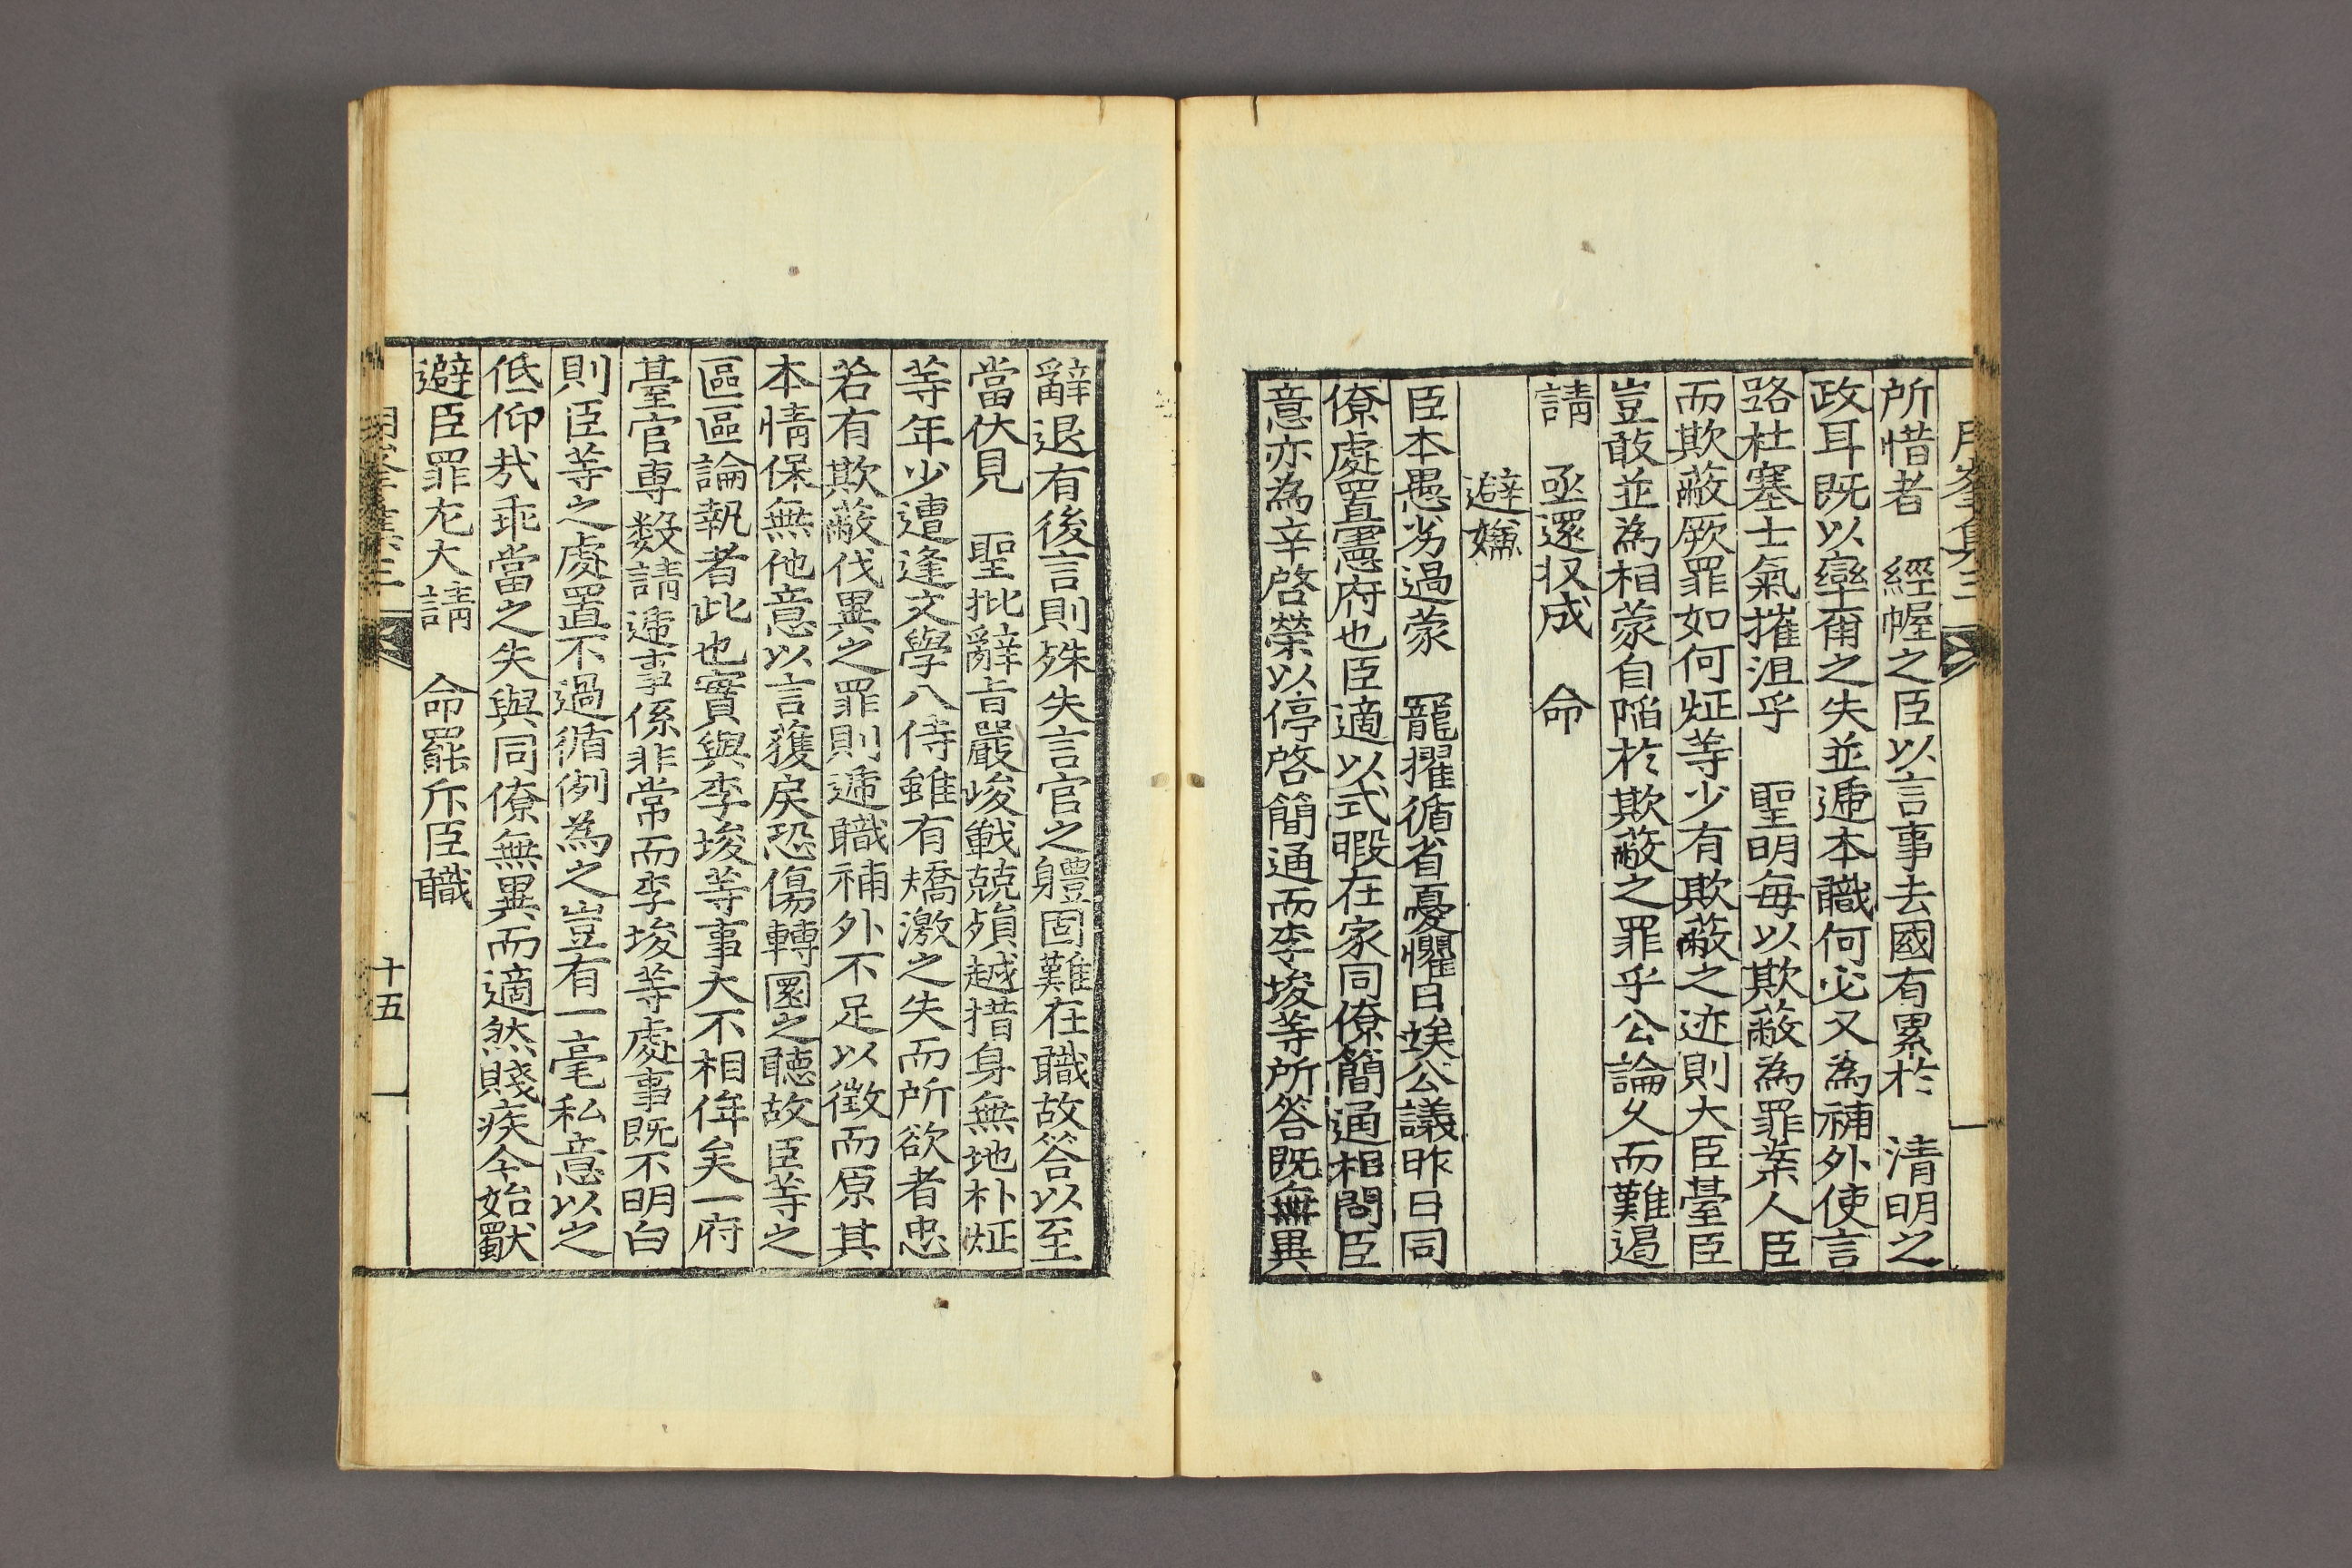 所惜者 經幄之臣以言事去國有累於 清明之
政耳既以㝈甭之失並遞本職何必又為補外使言
路杜塞士氣摧沮乎 聖明每以欺蔽為罪業人臣
而欺蔽厥罪如何炡等少有欺蔽之迹則大臣臺臣
豈敢並為相蒙自陷於欺蔽之罪乎公論久而難遏
請 亟還収成 命
避嫌
臣本愚劣過蒙 寵擢循省憂懼日竢公議昨日同
僚處置憲府也臣適以式暇在家同僚簡通相問臣
意亦為辛啓榮以停啓簡通而李埈等所答既無異
辭退有後言則殊失言官之軆固難在職故答以至
當伏見 聖批辭旨嚴峻戰兢殞越措身無地朴炡
等年少遭逢文學入侍雖有矯激之失而所欲者忠
若有欺蔽伐異之罪則遞職補外不足以徵而原其
本情保無他意以言獲戾恐傷轉圜之聽故臣等之
區區論執者此也實與李埈等事大不相侔矣一府
臺官專数請遞事係非常而李埈等處事既不明白
則臣等之處置不過循例為之豈有一毫私意以之
低仰㢤乖當之失與同僚無異而適然賤疾今始獸
避臣罪尤大請 命罷斥臣職
十五